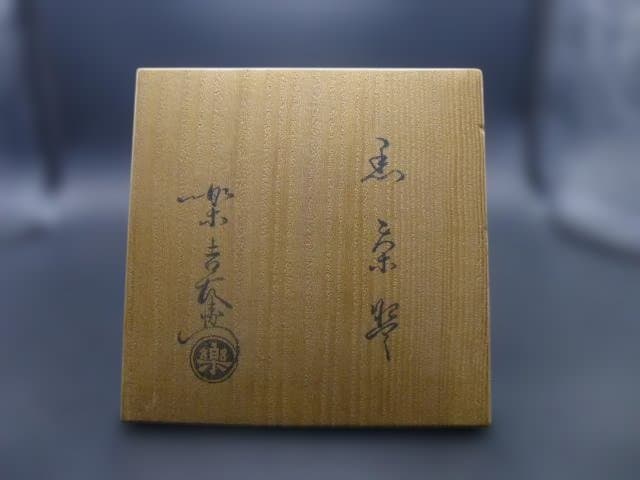 黒茶盌
樂吉左衛門
樂